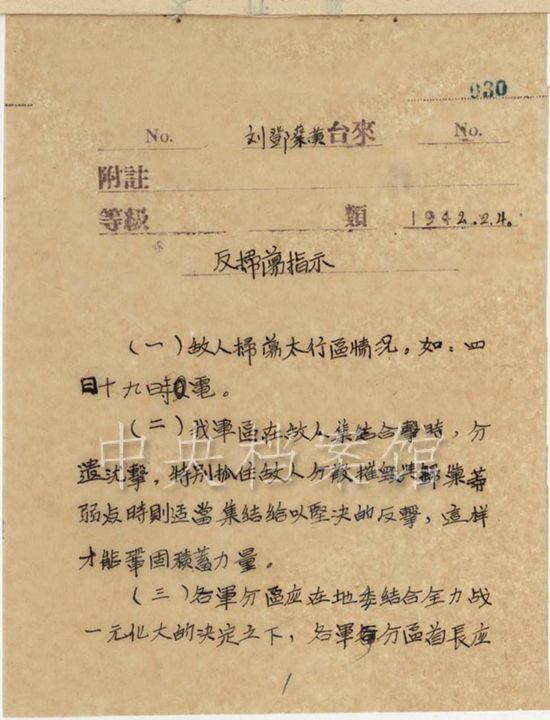 030
No. 刘鄧蔡黄台來 No.
附註
等級 類 1942.2.4.
反掃蕩指示
(一)敌人掃蕩太行區情况。如：四
日十九時電。
(二)我軍區在敌人集结合擊時，分
遣沈擊，特别抓住敌人分散摧毁
弱点時則适當集结給以堅决的反擊，這样
才能鞏固積蓄力量。
(三)各軍分區應在地委结合全力战
一元化大的决定之下，各軍分區首長應
1
中央档案馆